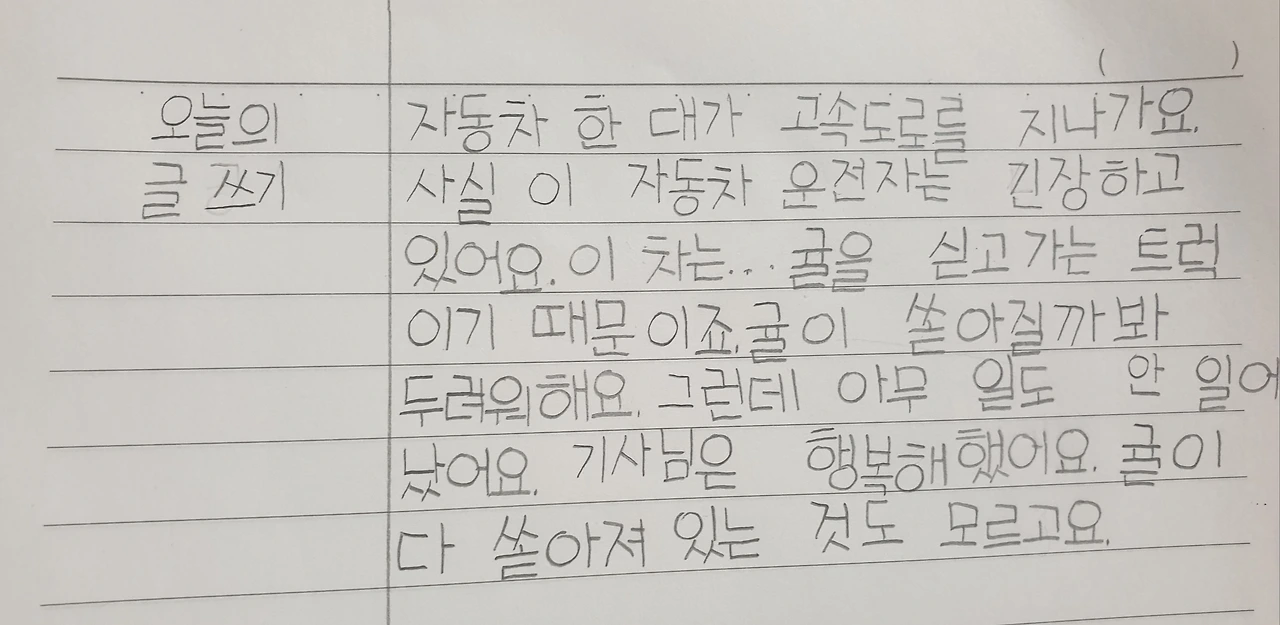 (          )
오늘의 자동차 한 대가 고속도로를 지나가요.
글 쓰기 사실 이 자동차 운전자는 긴장하고
있어요. 이 차는... 귤을 싣고 가는 트럭
이기 때문이죠. 귤이 쏟아질까봐
두려워해요. 그런데 아무 일도 안 일어
났어요. 기사님은 행복해했어요. 귤이
다 쏟아져 있는 것도 모르고요.